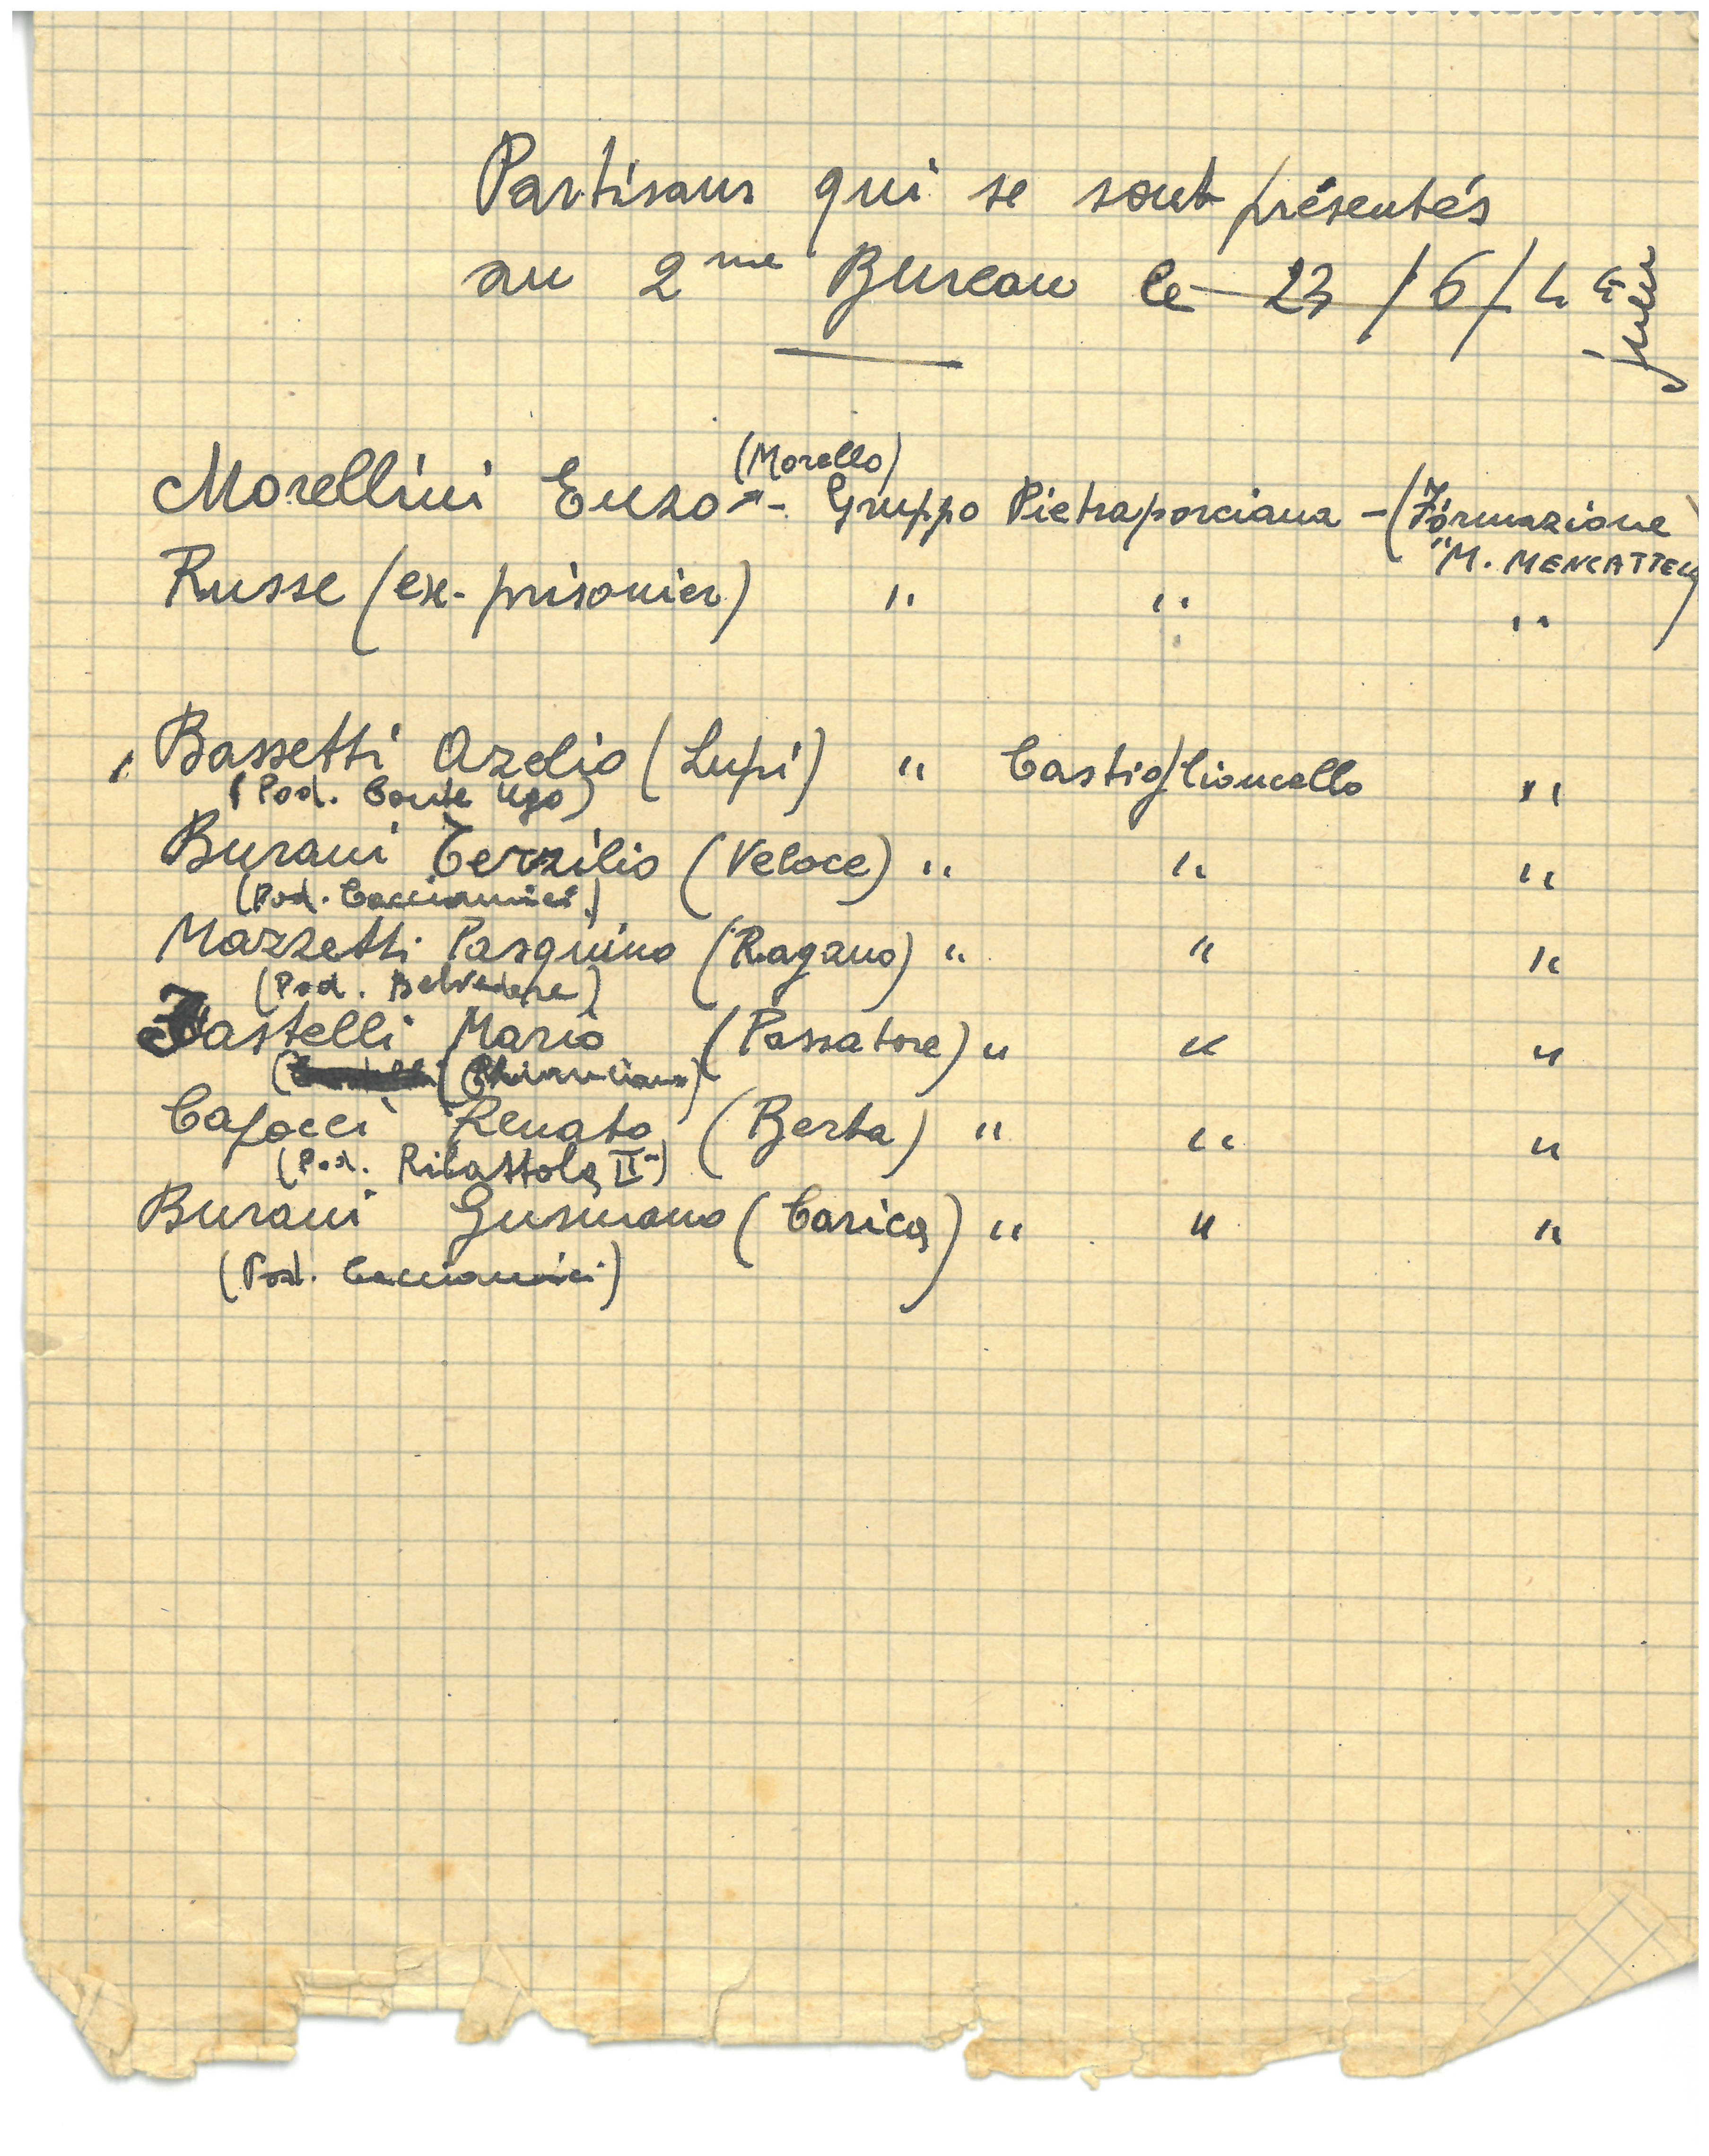 Partisans qui se sont présentés
au 2me Bureau le 23/6/44
juin
(Morello)
Morellini Enzo - Gruppo Pietraporciana - (Formazione
"M. MENCATTELLI
Russe (ex-prisonier) " " " )
Bassetti Azelio (Lupi) " Castiglioncello "
(Pod. Conte Ugo)
Burani Terzilio (Veloce) " " "
(Pod. Cacciamici)
Mazzetti Pasquino (Ragano) " " "
(Pod. Belvedere)
Fastelli Mario (Passatore) " " "
(Chianciano)
Capocci Renato (Berta) " " "
(Pod. Ribattola II°)
Burani Gusmano (Carica) " " "
(Pod. Cacciamici)